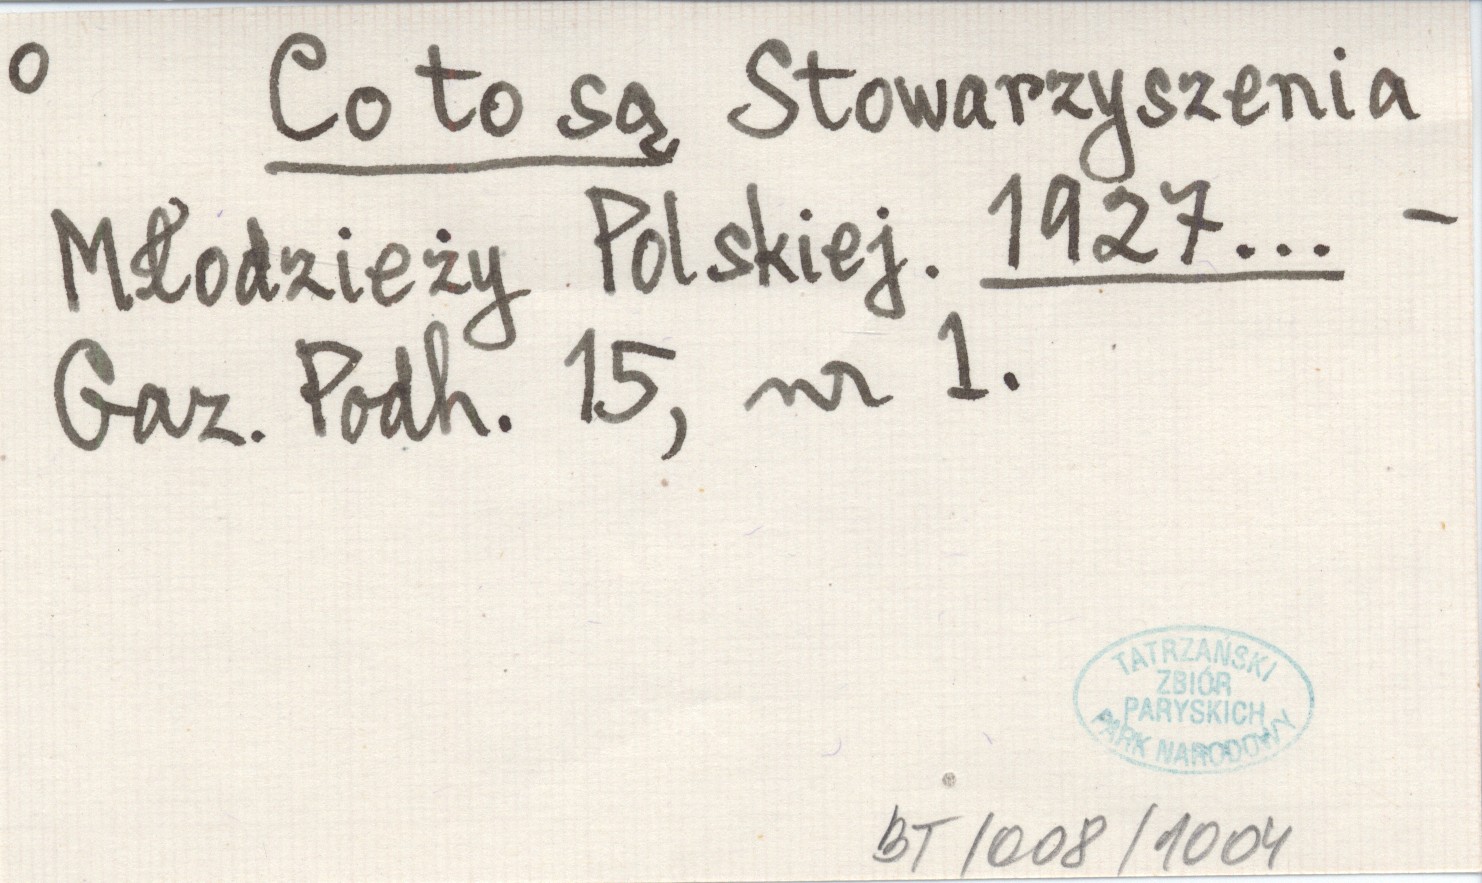 o Co to są Stowarzyszenia
Młodzieży Polskiej. 1927... -
Gaz. Podh. 15, nr 1.
TATRZAŃSKI
ZBIÓR
PARYSKICH
PARK NARODOWY
BT/008/1004